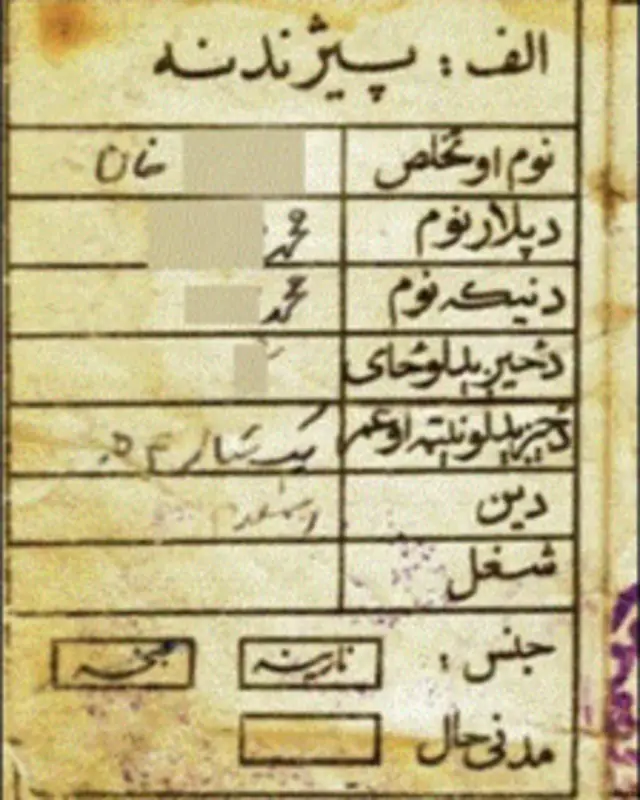 الف: پيژندنه
نوم او تخلص خان
د پلار نوم محمد
د نيکه نوم محمد
د ځيږيدلو ځای
د ځيږيدلو نيټه او عمر
دين اسلام
شغل
جنس: نارينه ښځه
مدنی حال